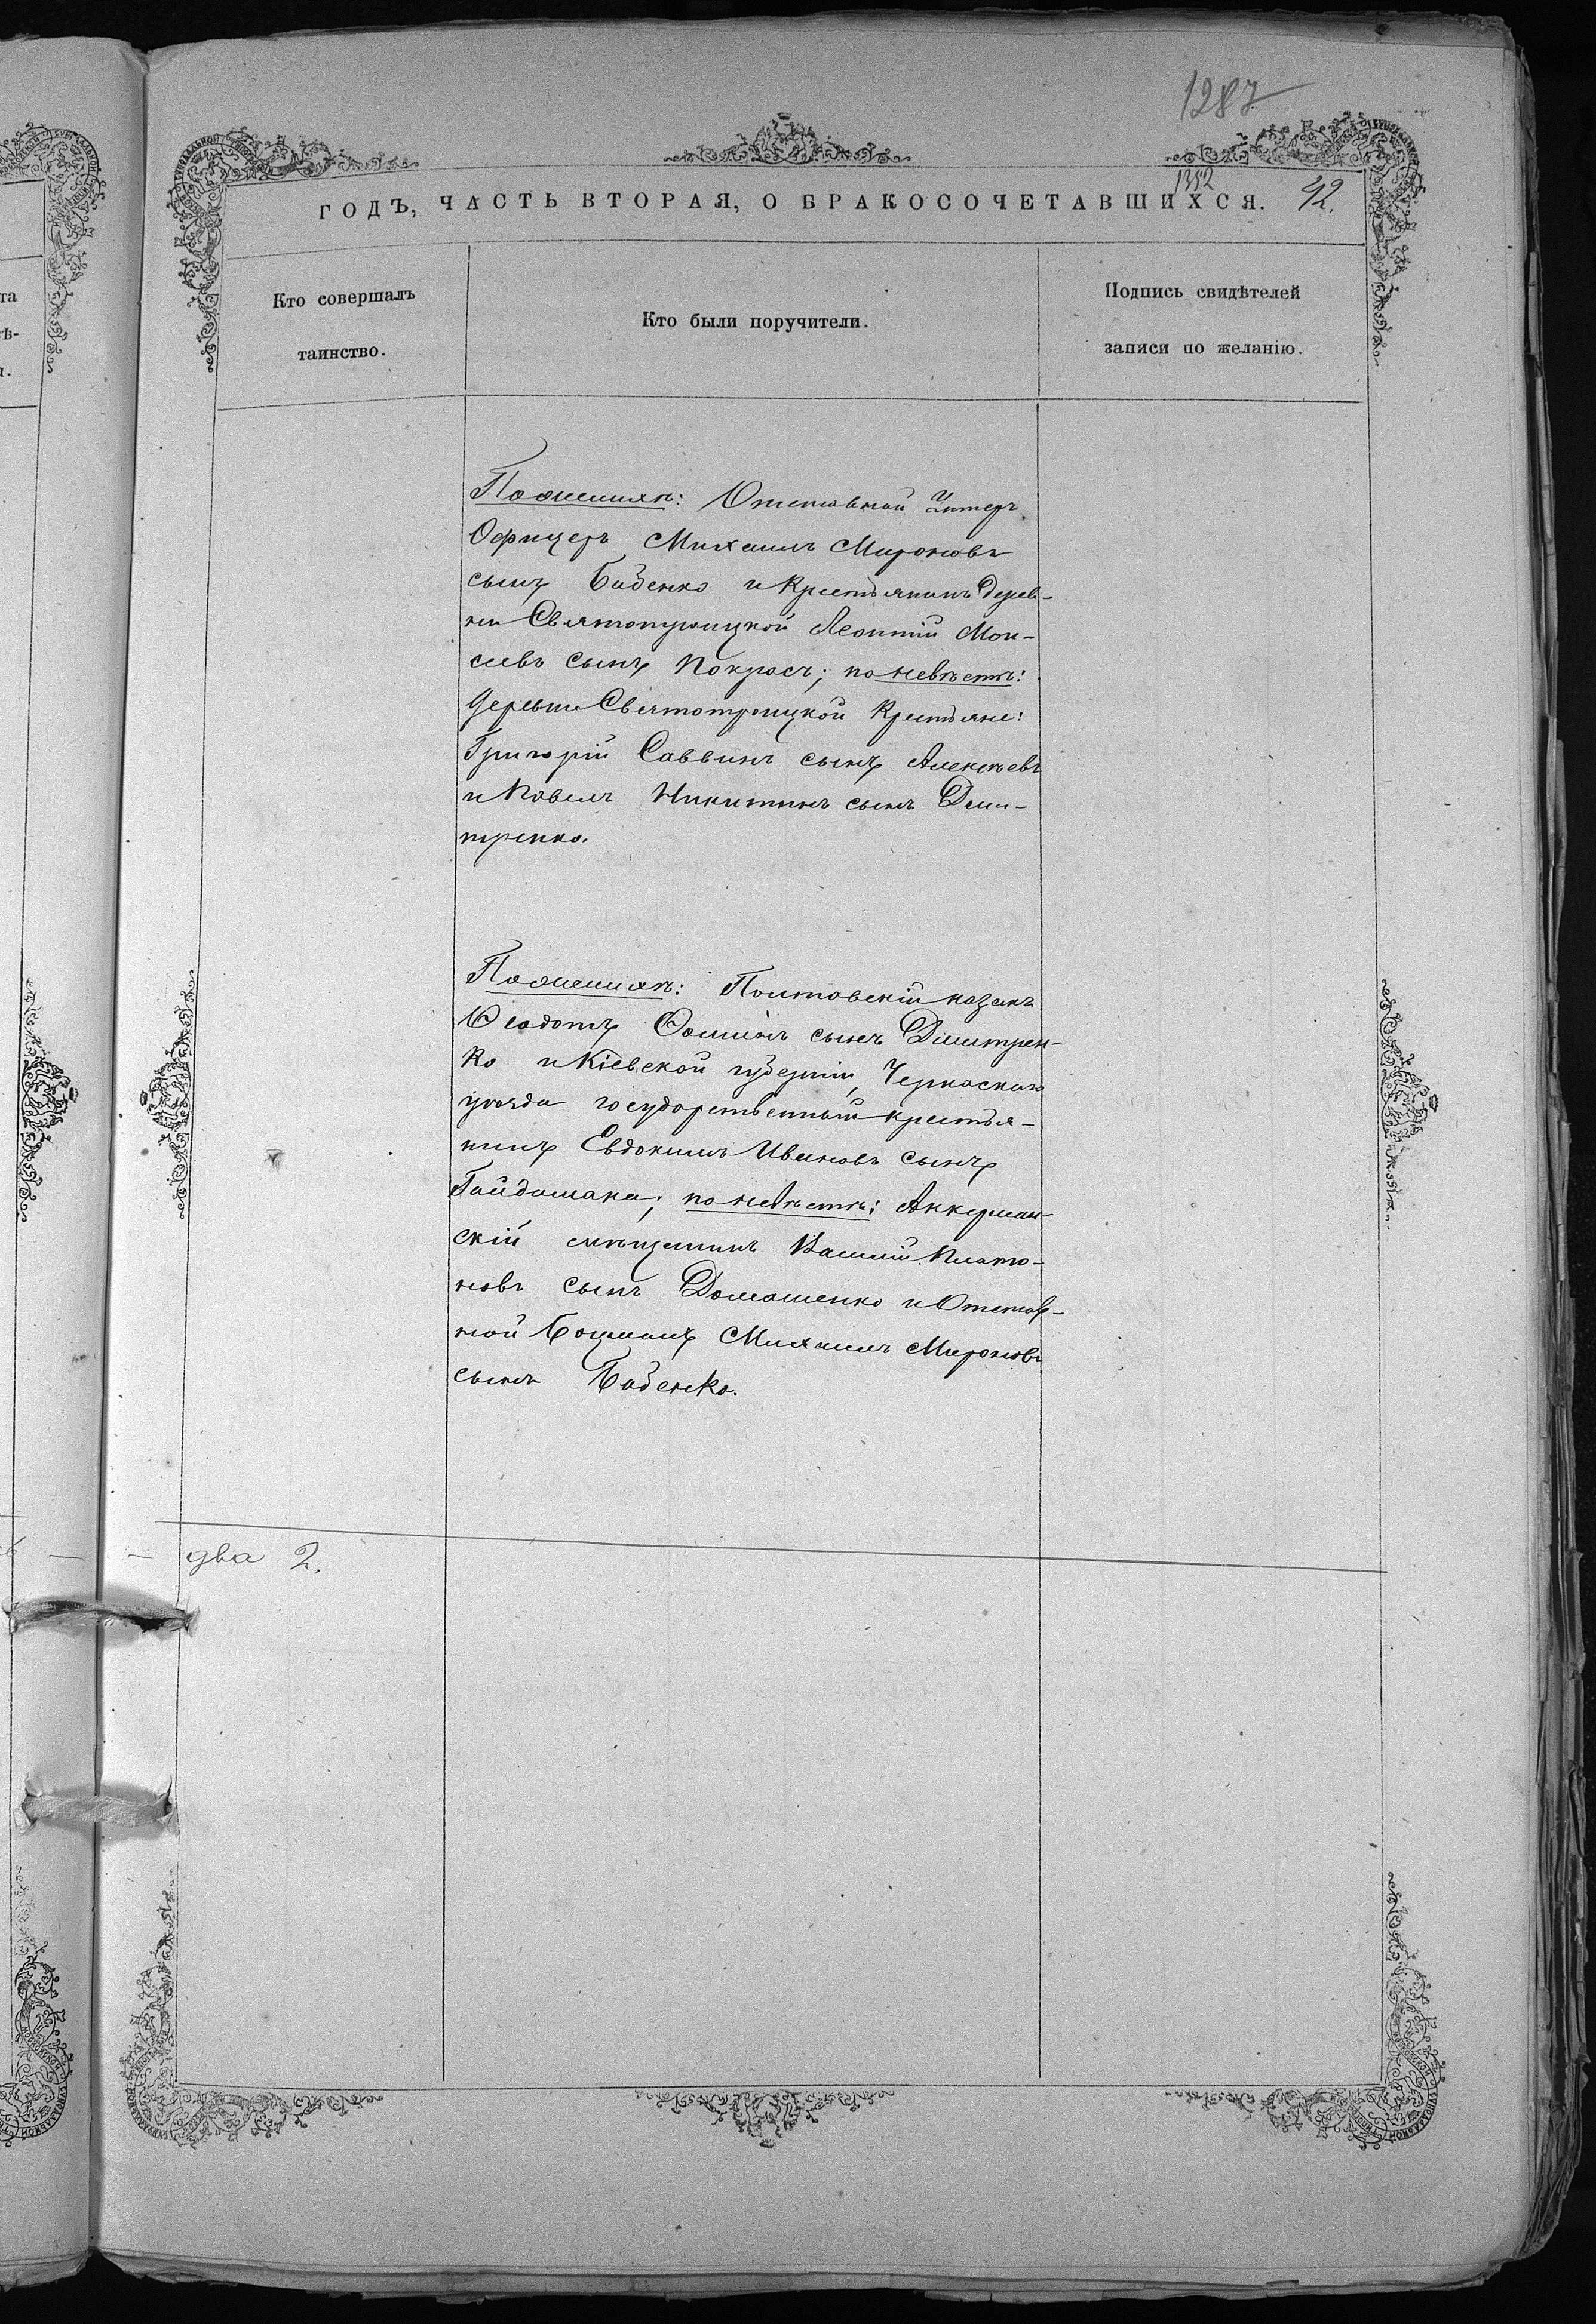 1287
1352
ГОДЪ, ЧАСТЬ ВТОРАЯ, О БРАКОСОЧЕТАВШИХСЯ. 42.
Кто совершалъ
таинство.
Кто были поручители.
Подпись свидѣтелей
записи по желанію.
По женихѣ: Отставной Унтеръ
Офицеръ Михаилъ Мироновъ
сынъ Биденко и Крестьянинъ дерев-
ни Святотроицкой Леонтій Мои-
сеевъ сынъ Покрасъ; по невѣстѣ:
деревни Святотроицкой Крестьяне:
Григорій Саввинъ сынъ Алексѣевъ
и Павелъ Никитинъ сынъ Дми-
тренко.
По женихѣ: Полтавскій казакъ
Ѳеодотъ Ѳоминъ сынъ Димитрен-
ко и Кіевской губерніи, Черкаскаго
уѣзда государственный крестья-
нинъ Евдокимъ Ивановъ сынъ
Гайдамака; по невѣстѣ: Аккерман-
скій мѣщанинъ Василій Плато-
новъ сынъ Домашенко и Отстав-
ной Боцманъ Михаилъ Мироновъ
сынъ Биденко.
два 2.